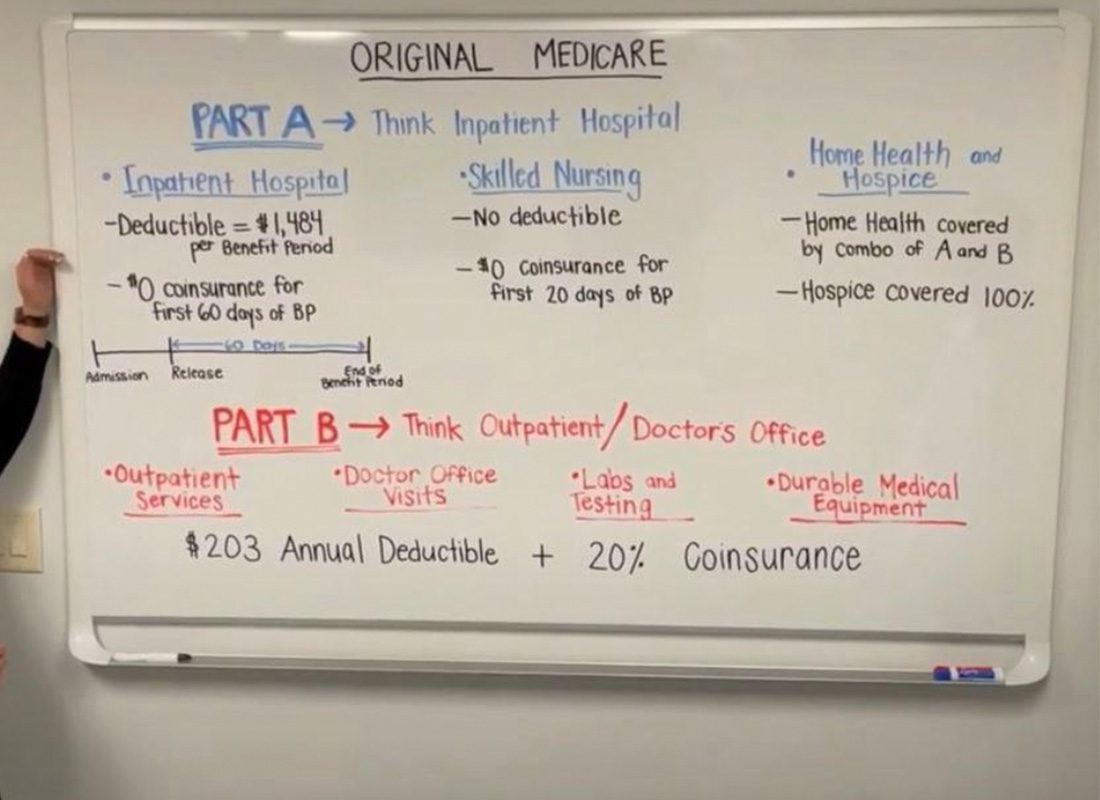 ORIGINAL MEDICARE
PART A → Think Inpatient Hospital
• Inpatient Hospital
-Deductible = $1,484
per Benefit Period
- $0 coinsurance for
first 60 days of BP
60 Days
Admission Release End of
Benefit Period
• Skilled Nursing
- No deductible
- $0 coinsurance for
first 20 days of BP
• Home Health and
Hospice
- Home Health covered
by combo of A and B
- Hospice covered 100%
PART B → Think Outpatient/Doctor's Office
• Outpatient
Services
• Doctor Office
Visits
• Labs and
Testing
• Durable Medical
Equipment
$203 Annual Deductible + 20% Coinsurance